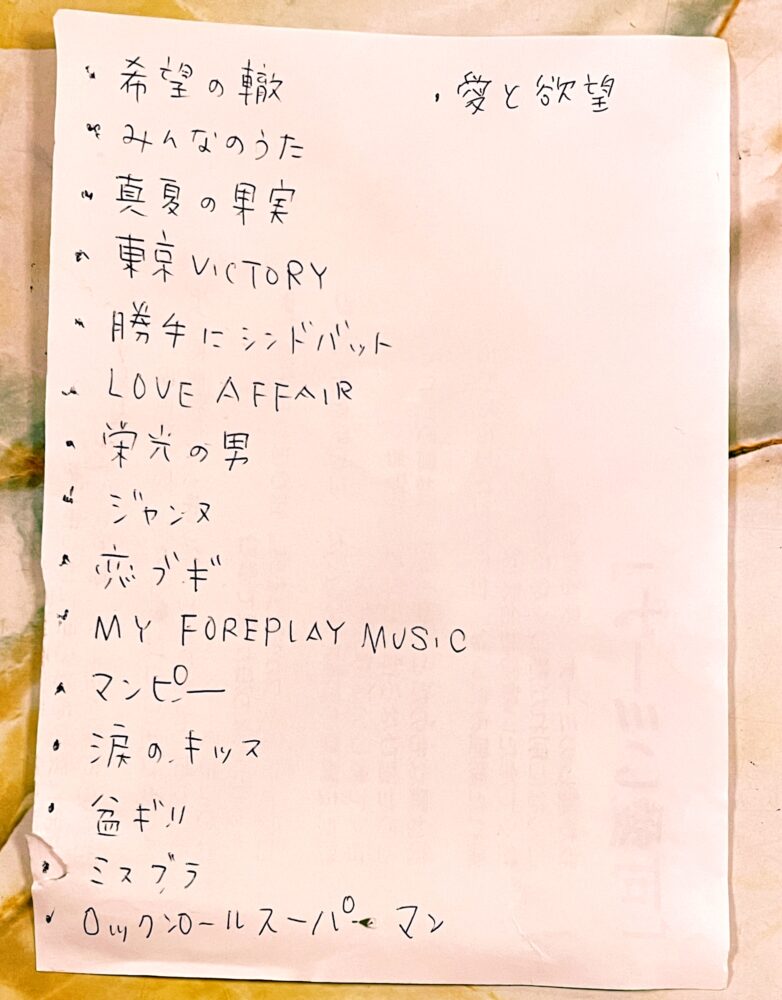 ・希望の轍
・みんなのうた
・真夏の果実
・東京VICTORY
・勝手にシンドバット
・LOVE AFFAIR
・栄光の男
・ジャンヌ
・恋ブギ
・MY FOREPLAY MUSIC
・マンピー
・涙のキッス
・盆ギリ
・ミスブラ
・ロックンロールスーパーマン
・愛と欲望